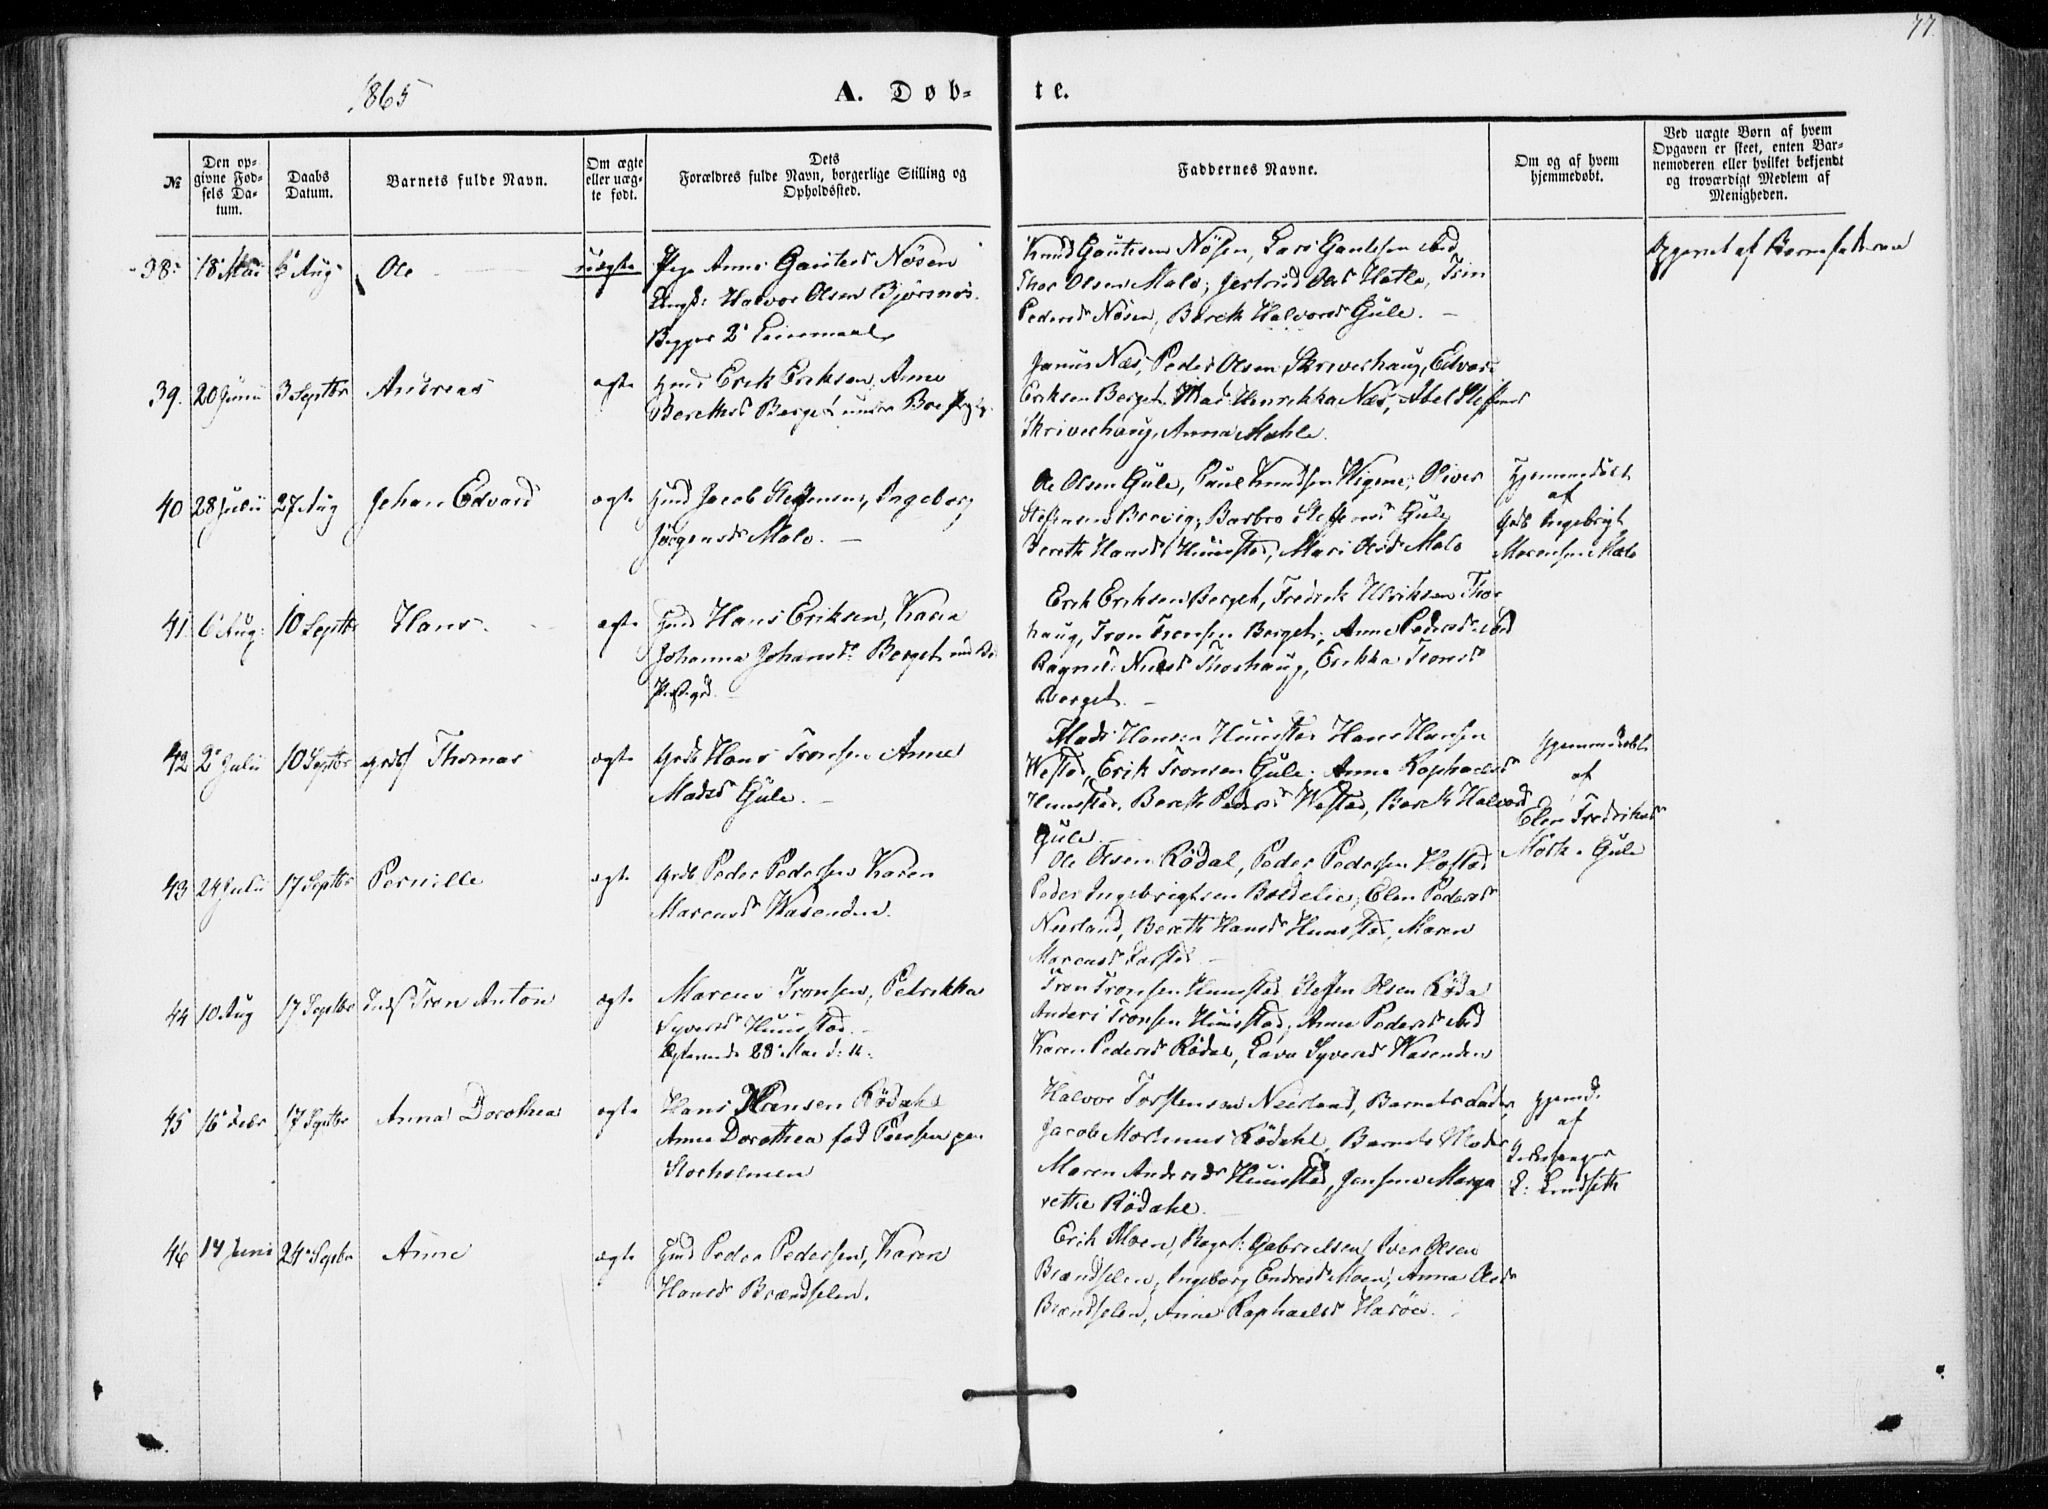 77.
1865
A. Døb- te.
№
Den op-
givne Fød-
sels Da-
tum.
Daabs
Datum.
Barnets fulde Navn.
Om ægte
eller uæg-
te født.
Dets
Forældres fulde Navn, borgerlige Stilling og
Opholdssted.
Faddernes Navne.
Om og af hvem
hjemmedøbt.
Ved uægte Børn af hvem
Opgaven er skeet, enten Bar-
nemoderen eller hvilket bekjendt
og troværdigt Medlem af
Menigheden.
38. 18 Mai 6 Aug Ole uægte Pige Anne Gautesd Nøsen
Ungk: Halvor Olsen Bjørsnøs
Begges 2 Leiermaal
Knud Gautesen Nøsen, Lars Gautesen ibd
Thor Olsen Malo, Gertrud Olsd Hatle, Trin
Pedersd Nøsen, Bereth Halvorsd Gule. —
Opgivet af Barnefaderen
39. 20 Juni 3 Septbr Andreas ægte Hmd Erik Eriksen, Anne
Berethsd Berget under Boe
Janus Næs, Peder Olsen Skriverhaug, Edvard
Eriksen Berget, Mad Henrikka Næs, Abel Steffensd
Skriverhaug, Anna Mahle.
40 28 Julii 27 Aug Johan Edvard ægte Hmd Jacob Steffensen, Ingeborg
Jørgensd Malo. —
Ole Olsen Gule, Paul Knudsen Wigene, Oliver
Steffensen Brevig, Barbro Steffensd Gule
Bereth Hansd Huustad, Mari Olsd Malo
Hjemmedøbt
af
Grdb Ingebrigt
Morensen Malo
41 6 Aug: 10 Septbr Hans ægte Hmd Hans Eriksen, Karen
Johanna Johansd Berget und Bo
Præstegrd.
Erik Eriksen Berget, Fredrik Ulriksen Thor
haug, Tron Tronsen Berget, Anne Pedersd ibd
Ragnild Nilsd Thorhaug, Erikka Tronsd
Berget. —
42 2 Julii 10 Septbr Thomas ægte Grdb Hans Tronsen Anne
Madsd Gule. —
Mads Hansen Huustad Hans Hansen
Westad, Erik Tronsen Gule, Anne Raphaelsd
Huustad, Bereth Pedersd Westad, Bereth Halvorsd
Gule. —
Hjemmedøbt
af
Elen Fredriksd
Mørk Gule
43 24 Julii 17 Septbr Pernille ægte Grdb Peder Pedersen Karen
Marensd Wasenden.
Ole Olsen Rødal, Peder Pedersen Hostad
Peder Ingebrigtsen Boldelie, Elen Pedersd
Neerland, Bereth Hansd Huustad, Maren
Marensd
44 10 Aug 17 Septbr Tron Anton ægte Marcus Tronsen, Petrikka
Syversd Huustad. —
Egteviede 28 Mai d: A:
Tron Tronsen Huustad Steffen Olsen Rødal
Anders Tronsen Huustad, Anne Pedersd ibd
Karen Pedersd Rødal, Lava Syversd Wasenden
45 16 Febr 17 Septbr Anna Dorothea ægte Hans Hansen Rødahl
Anne Dorothea fød
Storholmen
Halvor Torstensen Neerland, Barnets Fader
Jacob Mortinus Rødahl, Barnets Moder
Maren Andersd Huustad, Marga
rethe Rødahl.
Hjemd.
af
Kirkesanger
L: Lindseth
46 14 Juni 24 Septbr Anne ægte Hmd Peder Pedersen, Karen
Hansd Brændselen.
Erik Moen, Gabrielsen, Iver Olsen
Brændselen, Ingeborg Endresd Moen, Anna Olsd
Brændselen, Anne Raphaelsd Harøe.